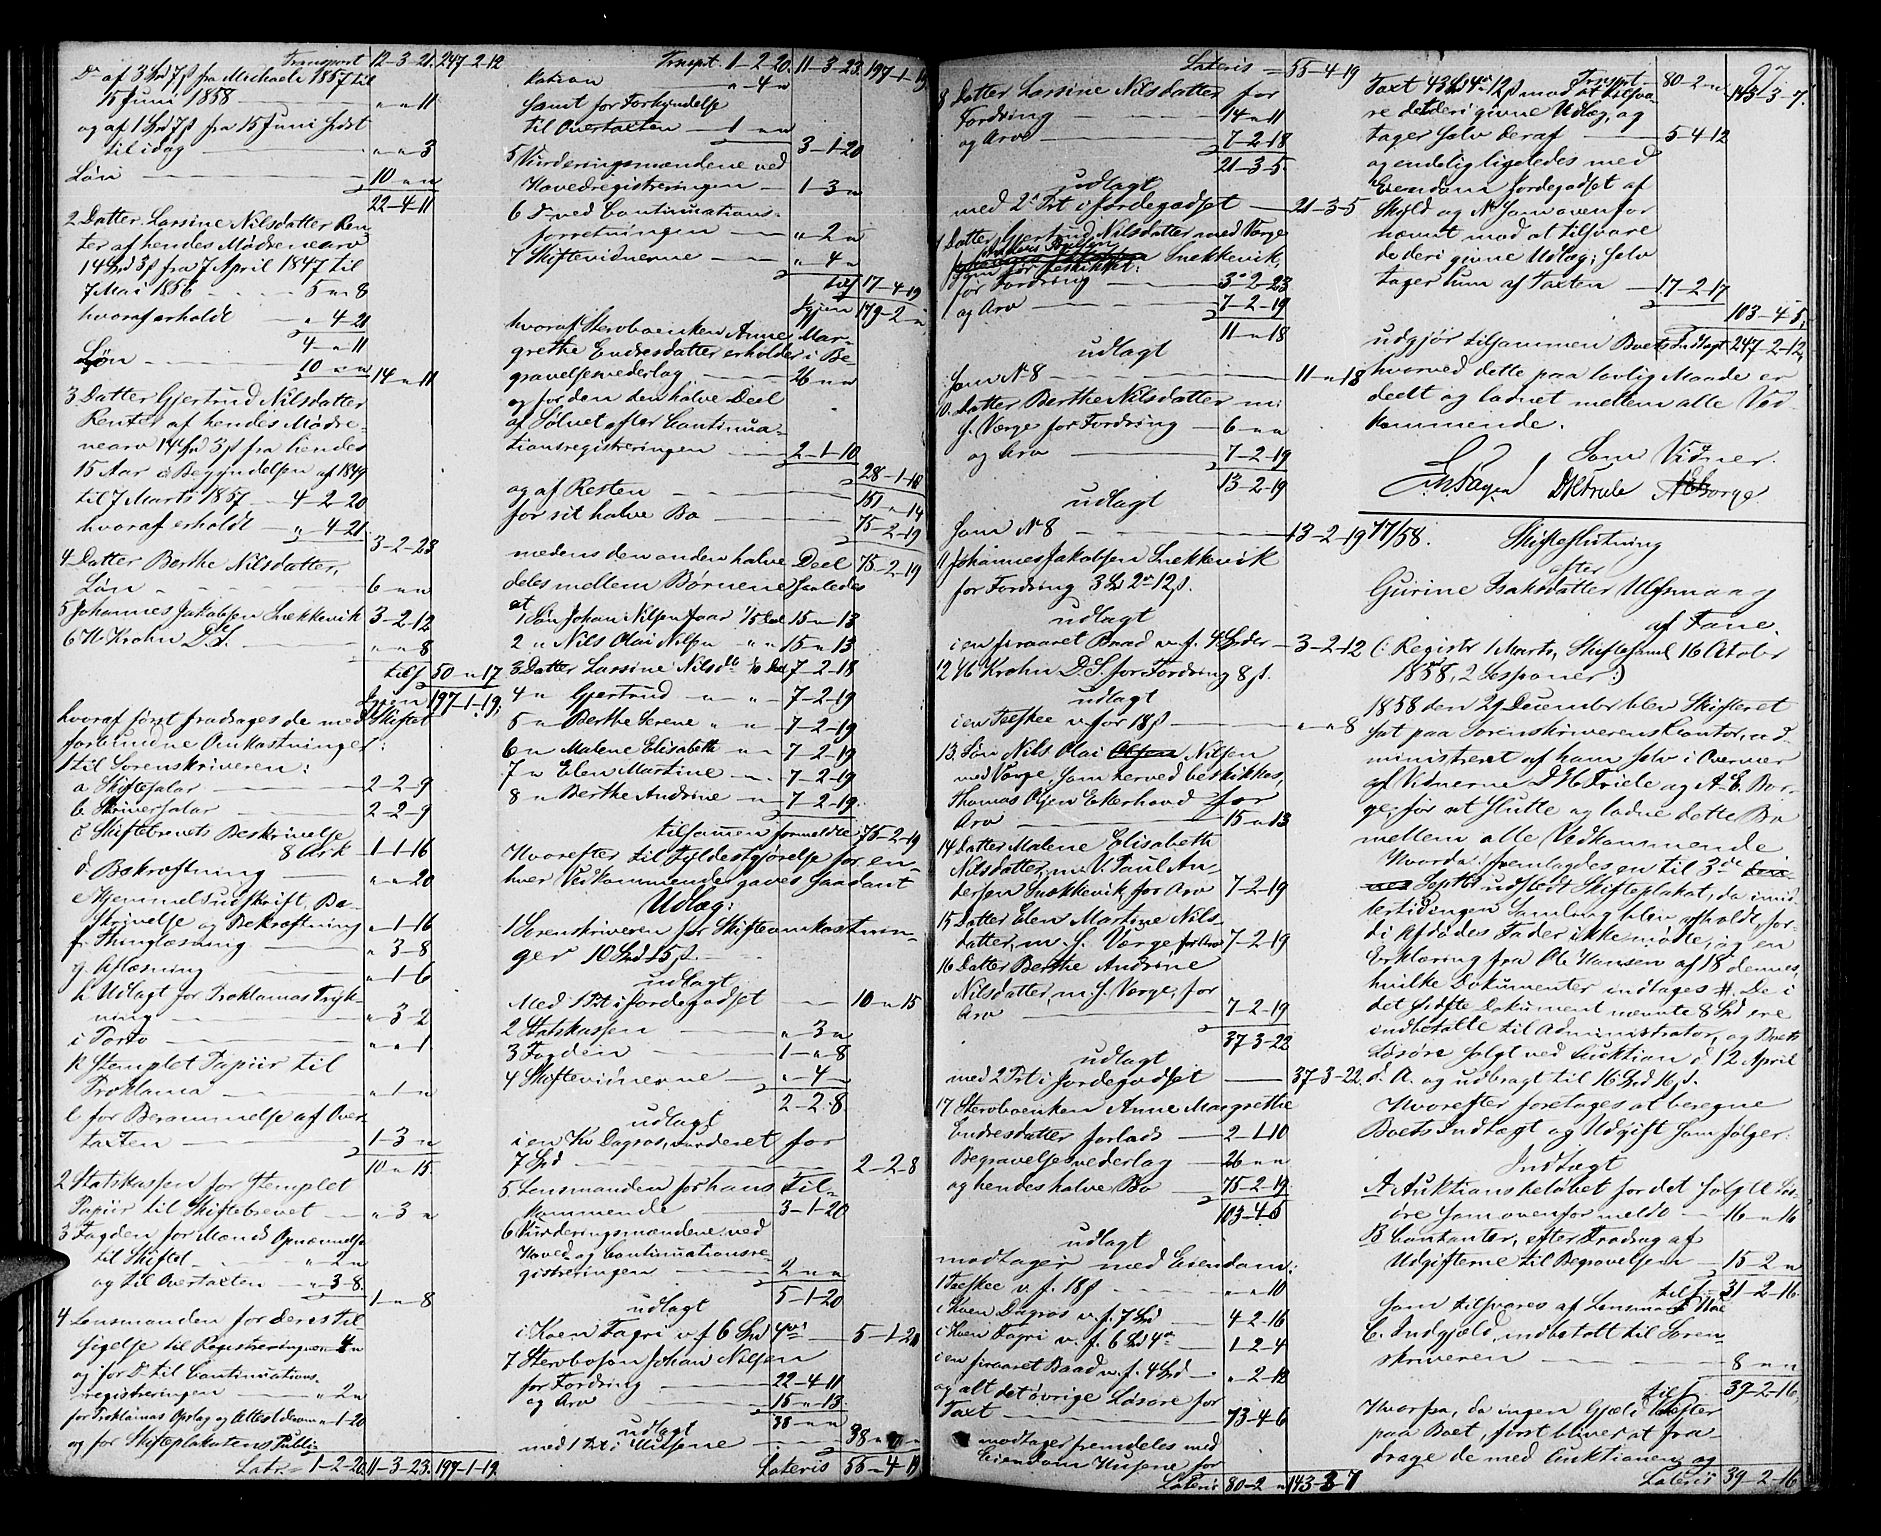 Transport 12-3-21. 247-2-12
Do af 3 Spd 7 s fra Michaeli 1857 til
15 Juni 1858 — " " 11
og af 1 Spd 7 s fra 15 Juni sidst
til idag — " " 3
Løn — 10 " "
22-4-11
2 Datter Larsine Nilsdatter Ren-
ter af hendes Mødrenearv
14 Spd 3 s fra 7 April 1847 til
7 Mai 1856 — 5 " 8
hvoraf erholdt — " 4-21
4 " 11
Løn — 10 " "
14 " 11
3 Datter Gjertrud Nilsdatter
Renter af hendes Mødre-
nearv 14 Spd 3 s fra hendes
15 Aar Begyndelsen af 1849
til 7 Marts 1857 — 4-2-20
hvoraf erholdt — " 4-21
3-2-23
4 Datter Berthe Nilsdatter,
Løn — 6 " "
5 Johannes Jakobsen Snekkevik 3-2-12
6 W. Krohn D. S. — " " 8
tils 50 " 17
Igjen 197-1-19;
hvoraf først fradrages de med Skiftet
forbundne Omkostninger:
1 til Sorenskriveren:
a Skiftesalær — 2-2-9
b Skriversalær — 2-2-9
c Skiftebrevets Beskrivelse
8 Ark — 1-1-16
d. Bekræftning — " " 20
e Hjemmelsudskrift, Be-
skrivelse og Bekræftning " 1-16
f. Thinglæsning — " 3-8
g Aflæsning — " 1-6
h Udlagt for Proklamas Tryk-
ning — " 3-2
i Porto — " " 1
k Stemplet Papiir til
Proklama — " 1 "
l for Berammelse af Over-
taxten — 1-3 "
10 " 15
2 Statskassen for Stemplet
Papiir til Skiftebrevet — " 3 "
3 Fogden for Mænds Opnævnelse
til Skiftet — " 2 "
og til Overtaxten — " 3-8.
1 " 8
4 Lensmanden for deres Til-
sigelse til Registreringen " 4 "
og for Do til Continuations-
registreringen — " 2 "
for Proklamas Opslag og Attest derom " 1-20
og for Skifteplakatens Publi-
Latr. 1-2-20. 11-3-23. 197-1-19.
Trnspt. 1-2-20. 11-3-23. 197-1-19
kation — " 4 "
samt for Forkyndelse
til Overtaxten — 1 " "
3-1-20
5 Vurderingsmændene ved
Hovedregistreringen — 1-3 "
6 Do ved Continuations-
forretningen — " 2 "
7 Skiftevidnerne — " 4 "
tils 17-4-19
Igjen 179-2 "
hvoraf Stervboenken Anne Mar-
grethe Endresdatter erholder i Be-
gravelsesvederlag — 26 " "
og for den den halve Deel
af Sølvet efter Continua-
tionsregistreringen — 2-1-10
28-1-10
og af Resten — 151 " 14
for sit halve Bo — 75-2-19
medens den anden halve Deel 75-2-19
deles mellem Børnene saaledes
at
1 Søn Johan Nilsen faar 1/5 Del 15 " 13
2 " Nils Olai Nilsen " " 15 " 13
3 Datter Larsine Nilsdtr 1/10 Del 7-2-18
4 " Gjertrud " " 7-2-19
5 " Berthe Serene " " 7-2-19
6 " Malene Elisabeth " " 7-2-19
7 " Elen Martine " " 7-2-19
8 " Berthe Andrine " " 7-2-19.
tilsamen formeldte 75-2-19
Hvorefter til Fyldestgjørelse for en-
hver Vedkommende gaves saadant
Udlæg:
1 Sorenskriveren for Skifteomkostnin-
ger 10 Spd 15 s.
udlagt
Med 1 Prt i Jordegodset — 10 " 15
2 Statskassen — " 3 "
3 Fogden — 1 " 8
4 Skiftevidnerne — " 4 "
2-2-8
udlagt
i en Ko Dagros, vurderet for
7 Spd — 2-2-8
5 Lensmanden for hans Til-
kommende — 3-1-20
6 Vurderingsmændene ved
Hoved- og Continuationsre-
gistreringen — 2 " "
5-1-20
udlagt
i Koen Fagri v. f. 6 Spd 4 ort — 5-1-20
7 Stervbosøn Johan Nilsen
for Fordring — 22-4-11
og Arv — 15 " 13
38 " "
udlagt
med 1 Prt i Husene — 38 " "
Lateris 55-4-19
Lateris — 55-4-19
8 Datter Larsine Nilsdatter for
Fordring — 14 " 11
og Arv — 7-2-18
21-3-5.
udlagt
med 2 Prt i Jordegodset — 21-3-5
9 Datter Gjertrud Nilsdatter med Værge
Snekkevik,
som før beskikket:
for Fordring — 3-2-23
og Arv — 7-2-19
11 " 18
udlagt
som No 8 — 11 " 18
10. Datter Berthe Nilsdatter m:
s. Værge for Fordring — 6 " "
og Arv — 7-2-19
13-2-19
udlagt
som No 8 — 13-2-19
11 Johannes Jakobsen Snekkevik
for Fordring 3 Spd 2 ort 12 s.
udlagt
i en firaaret Baad v. f. 4 Spd der — 3-2-12
12 W Krohn D. S. for Fordring 8 s.
udlagt
i en Theeskee v. for 18 s — " " 8
13. Søn Nils Olai Nilsen
med Værge, som herved beskikkes,
Thomas Olsen Ekerhovd for
Arv — 15 " 13
14 Datter Malene Elisabeth
Nilsdatter, m. V. Paul An-
dersen Snekkevik, for Arv 7-2-19
15 Datter Elen Martine Nils-
datter, m. s. Værge for Arv 7-2-19
16 Datter Berthe Andrine
Nilsdatter, m. s. Værge, for
Arv — 7-2-19
37-3-22
udlagt
med 2 Prt i Jordegodset — 37-3-22.
17 Stervboenken Anne Margrethe
Endresdatter forlods — 2-1-10
Begravelsesvederlag — 26 " "
og hendes halve Bo — 75-2-19.
103-4-5
udlagt
modtager med Eiendom:
1 Theeskee v. f. 18 s — " " 10
i Koen Dagros v. f. 7 Spd — 4-2-16
i Koen Fagri v. f. 6 Spd 4 ort — 1-2-4
i en firaaret Baad v. f. 4 Spd — " 2-12
og alt det øvrige Løsøre for
Taxt — 73-4-6
modtager fremdeles med
Eiendom Husene for
Lateris 80-2 " 143-3-7
97.
Trnspt 80-2 " 143-3-7.
Taxt 43 Spd 4 ort 12 s mod at tilsva-
re det deri givne Udlæg, og
tager selv deraf — 5-4-12
og endelig ligeledes med
Eiendom Jordegodset af
Skyld og No som ovenfor
nævnt mod at tilsvare
de deri givne Udlæg; selv
tager hun af Taxten — 17-2-17
103-4-5;
udgjør tilsammen Boets Indtægt 247-2-12,
hvorved dette paa lovlig Maade er
deelt og lodnet mellem alle Ved-
kommende.
Som Vidner.
D H Friele A E Borge
17/58.
Skifteslutning
efter
Gurine Isaksdatter Ulfsmaag
af Fane.
(: Registr Marts, Skiftesaml 16 Otober
1858, 2 Gesponer:)
1858 den 29 December blev Skifteret
sat paa Sorenskriverens Contor, ad-
ministreret af ham selv i Overvær
af Vidnerne D. H. Friele og A. E. Bor-
ge, for at slutte og lodne dette Bo
mellem alle Vedkommende
Hvorda: fremlagdes en til 3de
Septbr udstedt Skifteplakat, da imid-
lertid ingen Samling blev afholdt, for-
di Afdødes Fader ikke mødte, og en
Erklæring fra Ole Hansen af 18 dennes,
hvilke Dokumenter indtages #. De i
det sidste Dokument nævnte 8 Spd ere
indbetalte til Administrator, og Boets
Løsøre solgt ved Auktion d 12 April
d. A. og udbragt til 16 Spd 16 s.
Hvorefter foretages at beregne
Boets Indtægt og Udgift som følger:
Indtægt
A. Auktionsbeløbet for det solgte Løs-
øre som ovenfor meldt — 16 " 16
B Contanter, efter Fradrag af
Udgifterne til Begravelsen — 15-2 "
tils 31-2-16
som tilsvares af Lensmand
C. Indgjeld, indbetalt til Soren-
skriveren — 8 " "
tils 39-2-16
Hvorpaa, da ingen Gjeld hæfter
paa Boet, først bliver at fra-
drage de med Auktionen og
Lateris 39-2-16